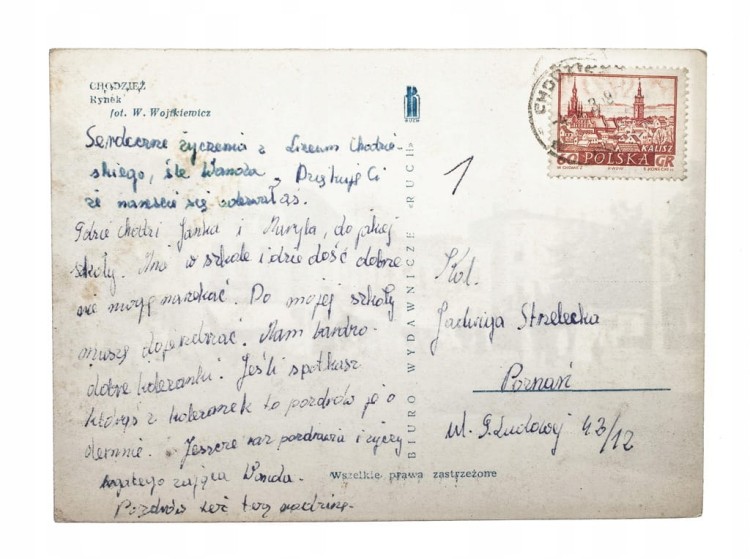 CHODZIEŻ
Rynek
fot. W. Wojtkiewicz
Serdeczne życzenia z Liceum Chodzie-
skiego, śle Wanda. Dziękuję Ci
że nareszcie się odezwałaś.
Gdzie chodzi Janka i Maryla, do jakiej
szkoły. Mnie w szkole idzie dość dobrze
nie mogę narzekać. Do mojej szkoły
muszę dojeżdżać. Mam bardzo
dobre koleżanki. Jeśli spotkasz
którąś z koleżanek to pozdrów je o
demnie. Jeszcze raz pozdrawia i życzy
Wanda.
Pozdrów też twą rodzinę.
RUCH
BIURO WYDAWNICZE „RUCH”
Wszelkie prawa zastrzeżone
1
CHODZIE
KALISZ
60 POLSKA GR
Kol.
Jadwiga Strzelecka
Poznań
ul. G. Ludowej 43/12